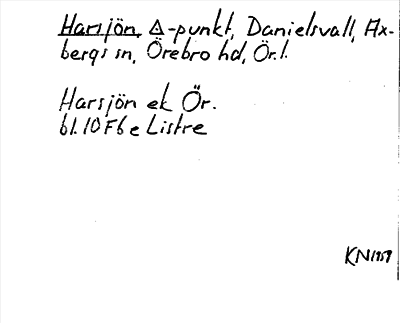 Harsjön, △-punkt, Danielsvall, Ax-
bergs sn, Örebro hd, Ör.l.
Harsjön ek Ör.
bl.10F6e Listre
KN1959